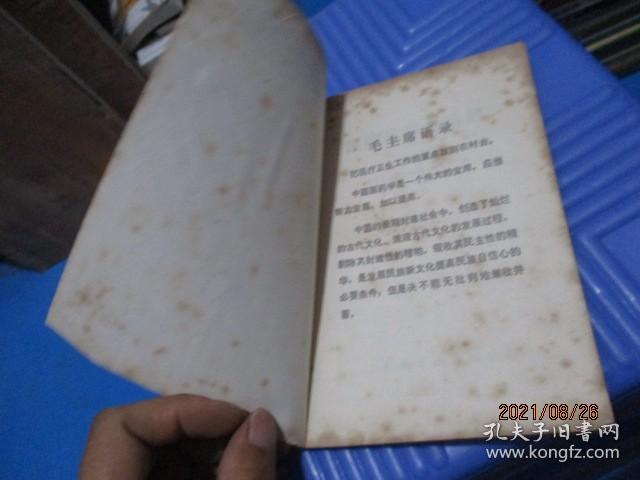 毛主席语录
把医疗卫生工作的重点放到农村去。
中国医药学是一个伟大的宝库，应当
努力发掘，加以提高。
中国的长期封建社会中，创造了灿烂
的古代文化。清理古代文化的发展过程，
剔除其封建性的糟粕，吸收其民主性的精
华，是发展民族新文化提高民族自信心的
必要条件；但是决不能无批判地兼收并
蓄。
2021/08/26
孔夫子旧书网
www.kongfz.com